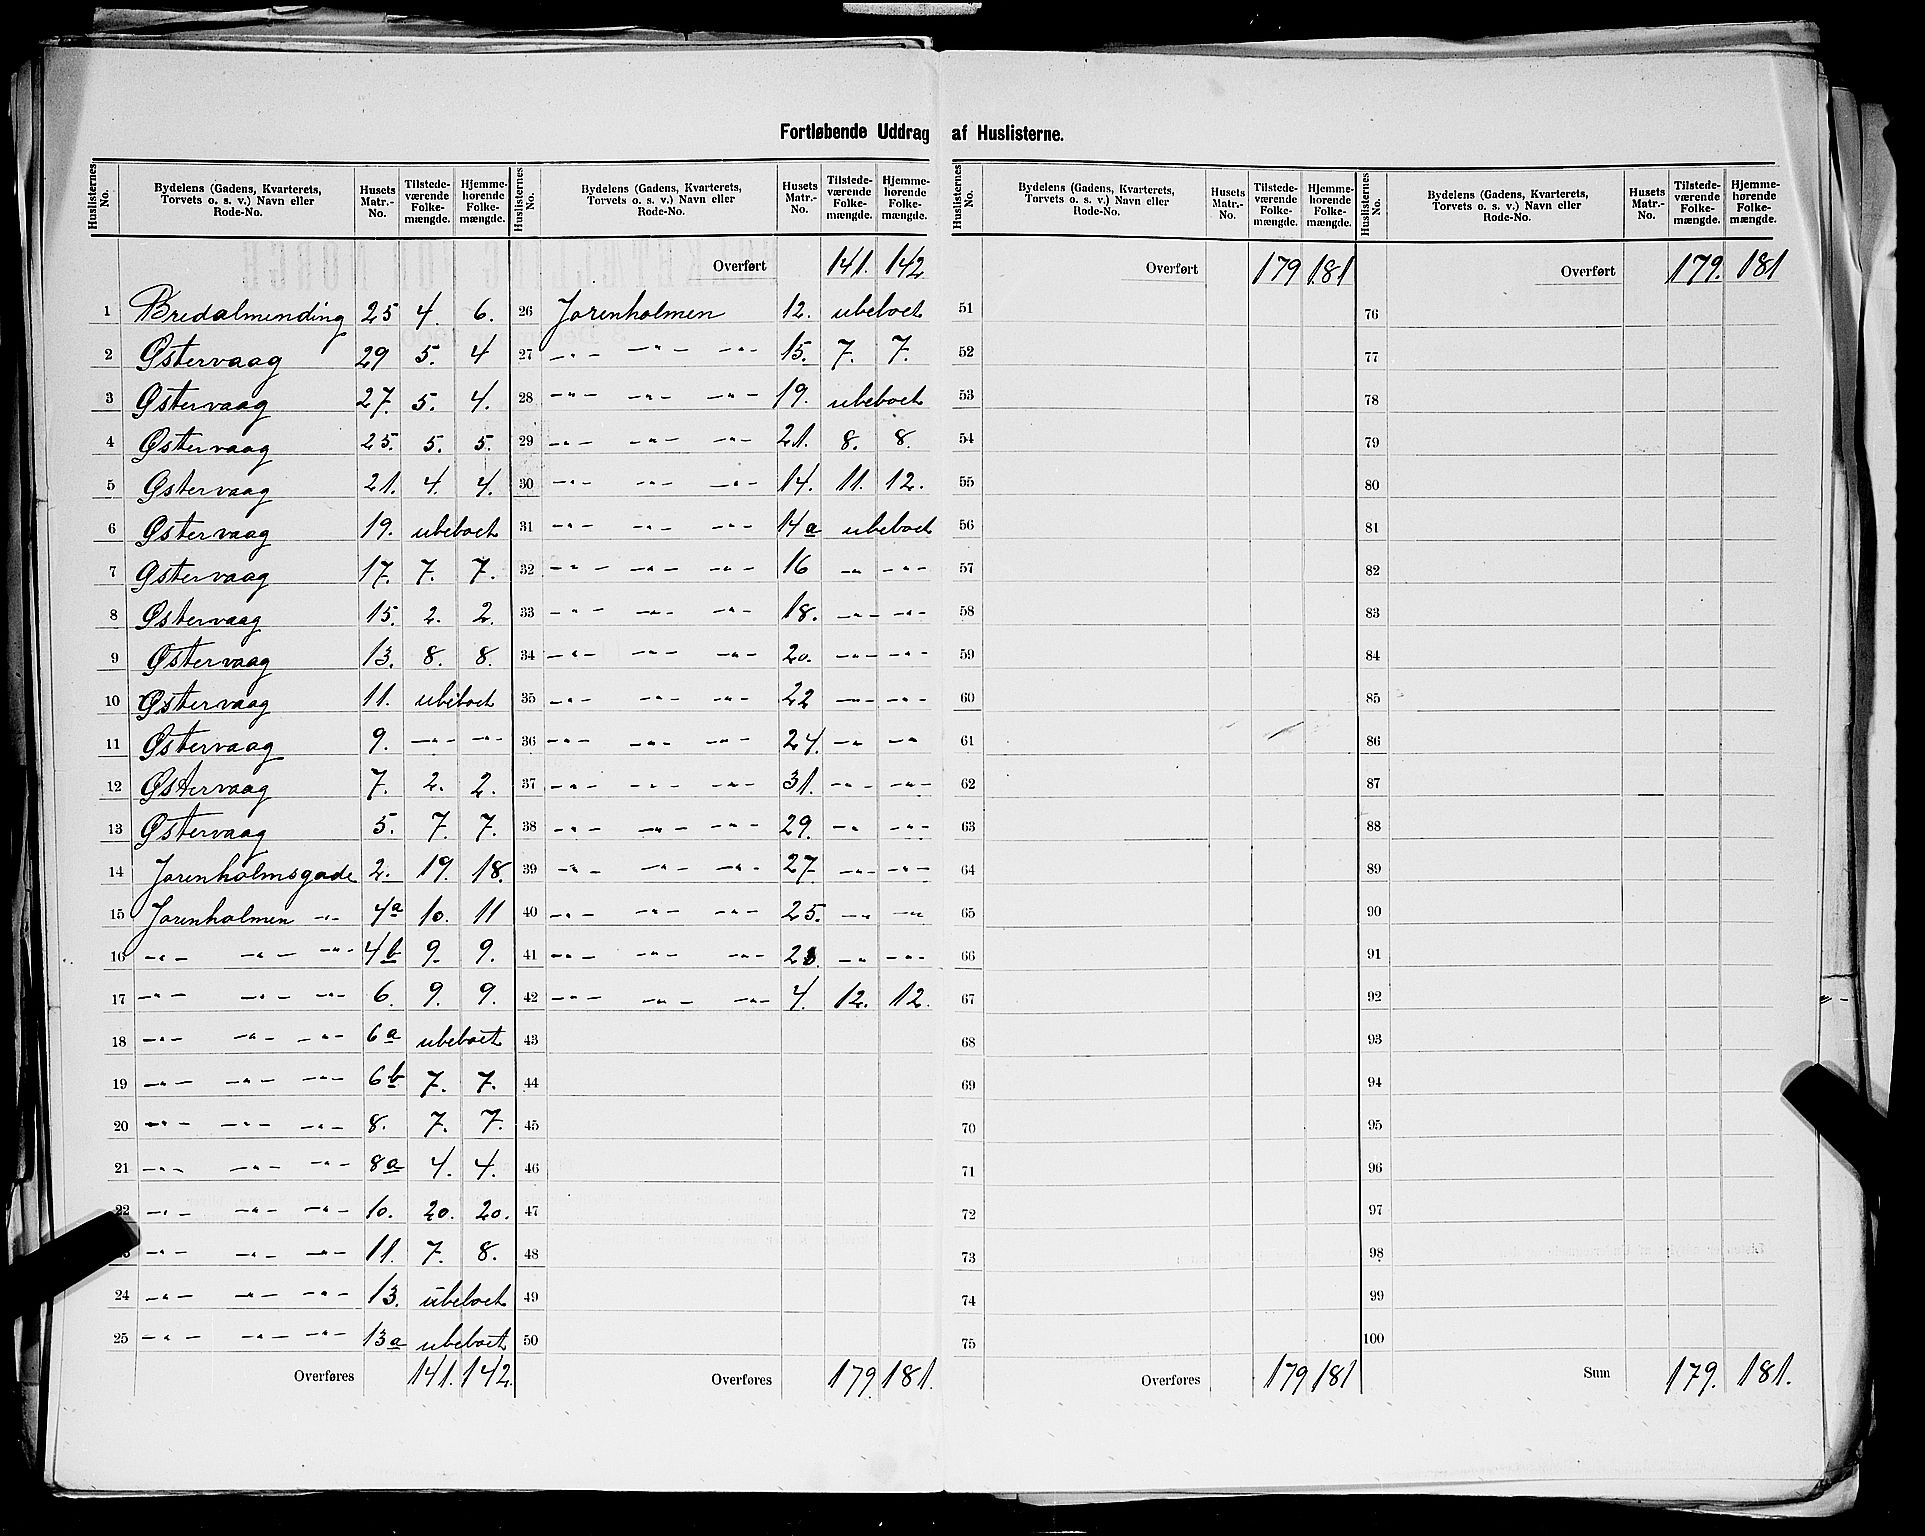 Fortløbende Uddrag af Huslisterne.
Huslisternes No. | Bydelens (Gadens, Kvarterets, Torvets o. s. v.) Navn eller Rode-No. | Husets Matr.-No. | Tilstedeværende Folkemængde. | Hjemmehørende Folkemængde. | Huslisternes No. | Bydelens (Gadens, Kvarterets, Torvets o. s. v.) Navn eller Rode-No. | Husets Matr.-No. | Tilstedeværende Folkemængde. | Hjemmehørende Folkemængde.
Overført 141. 142
1 Bredalmending 25 4. 6. 26 Jorenholmen 12. ubeboet
2 Østervaag 29 5. 4 27 -"- -"- -"- 15. 7. 7.
3 Østervaag 27. 5. 4. 28 -"- -"- -"- 19. ubeboet
4 Østervaag 25. 5. 5. 29 -"- -"- -"- 21. 8. 8.
5 Østervaag 21. 4. 4. 30 -"- -"- -"- 14. 11. 12.
6 Østervaag 19. ubeboet 31 -"- -"- -"- 14a ubeboet
7 Østervaag 17. 7. 7. 32 -"- -"- -"- 16 -"- -"-
8 Østervaag 15. 2. 2. 33 -"- -"- -"- 18. -"- -"-
9 Østervaag 13. 8. 8. 34 -"- -"- -"- 20. -"- -"-
10 Østervaag 11. ubeboet 35 -"- -"- -"- 22 -"- -"-
11 Østervaag 9. -"- -"- 36 -"- -"- -"- 24. -"- -"-
12 Østervaag 7. 2. 2. 37 -"- -"- -"- 31. -"- -"-
13 Østervaag 5. 7. 7. 38 -"- -"- -"- 29. -"- -"-
14 Jorenholmsgade 2. 19. 18. 39 -"- -"- -"- 27. -"- -"-
15 Jorenholmen -"- 4a 10. 11 40 -"- -"- -"- 25. -"- -"-
16 -"- -"- -"- 4b 9. 9. 41 -"- -"- -"- -"- -"-
17 -"- -"- -"- 6. 9. 9. 42 -"- -"- -"- 4. 12. 12.
18 -"- -"- -"- 6a ubeboet 43
19 -"- -"- -"- 6b 7. 7. 44
20 -"- -"- -"- 8. 7. 7. 45
21 -"- -"- -"- 8a 4. 4. 46
22 -"- -"- -"- 10. 20. 20. 47
-"- -"- -"- 11. 7. 8. 48
24 -"- -"- -"- 13. ubeboet 49
25 -"- -"- -"- 13a ubeboet 50
Overføres 141. 142. Overføres 179. 181.
Huslisternes No. | Bydelens (Gadens, Kvarterets, Torvets o. s. v.) Navn eller Rode-No. | Husets Matr.-No. | Tilstedeværende Folkemængde. | Hjemmehørende Folkemængde. | Huslisternes No. | Bydelens (Gadens, Kvarterets, Torvets o. s. v.) Navn eller Rode-No. | Husets Matr.-No. | Tilstedeværende Folkemængde. | Hjemmehørende Folkemængde.
Overført 179 181 Overført 179. 181
51 76
52 77
53 78
54 79
55 80
56 81
57 82
58 83
59 84
60 85
61 86
62 87
63 88
64 89
65 90
66 91
67 92
68 93
69 94
70 95
71 96
72 97
73 98
74 99
75 100
Overføres 179 181 Sum 179. 181.